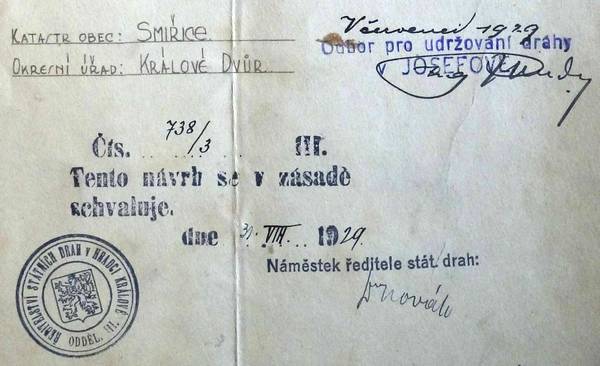 KATASTR. OBEC: SMIŘICE.
OKRESNÍ ÚŘAD: KRÁLOVÉ DVŮR.
V červenci 1929
Odbor pro udržování dráhy
v JOSEFOVĚ
Čís. 738/3 III.
Tento návrh se v zásadě
schvaluje.
dne VIII. 1929.
Náměstek ředitele stát. drah:
Novák
ŘEDITELSTVÍ STÁTNÍCH DRAH V HRADCI KRÁLOVÉ
ODDĚL. III.